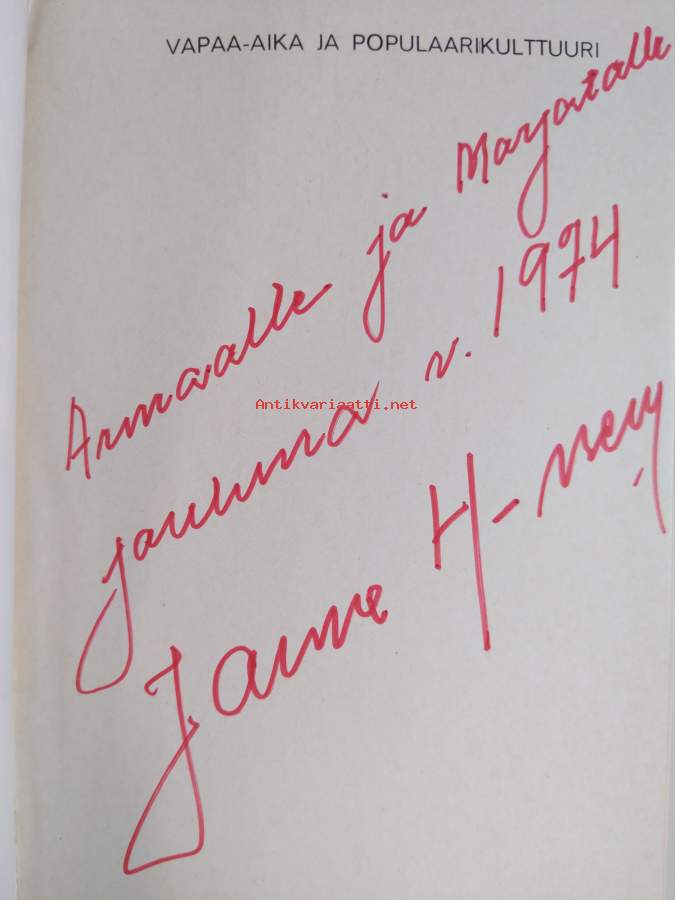 VAPAA-AIKA JA POPULAARIKULTTUURI
Armaalle ja Marjatalle
jouluna v. 1974
Antikvariaatti.net